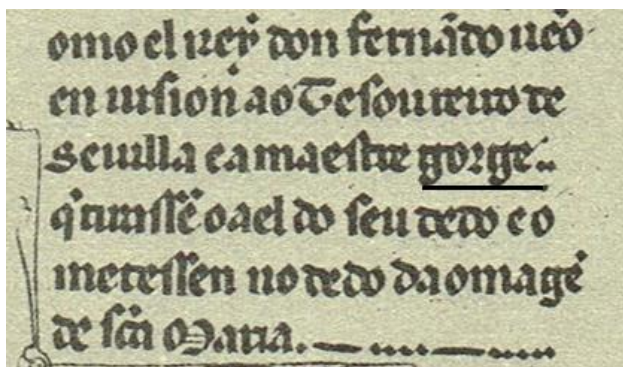 omo el rey don fernãdo uẽo
en uision ao Tesoureiro de
seuilla e a maestre gorge..
q̃ tirassẽ o ael do seu dedo e o
metessen no dedo da omagẽ
de sc̃a Maria.